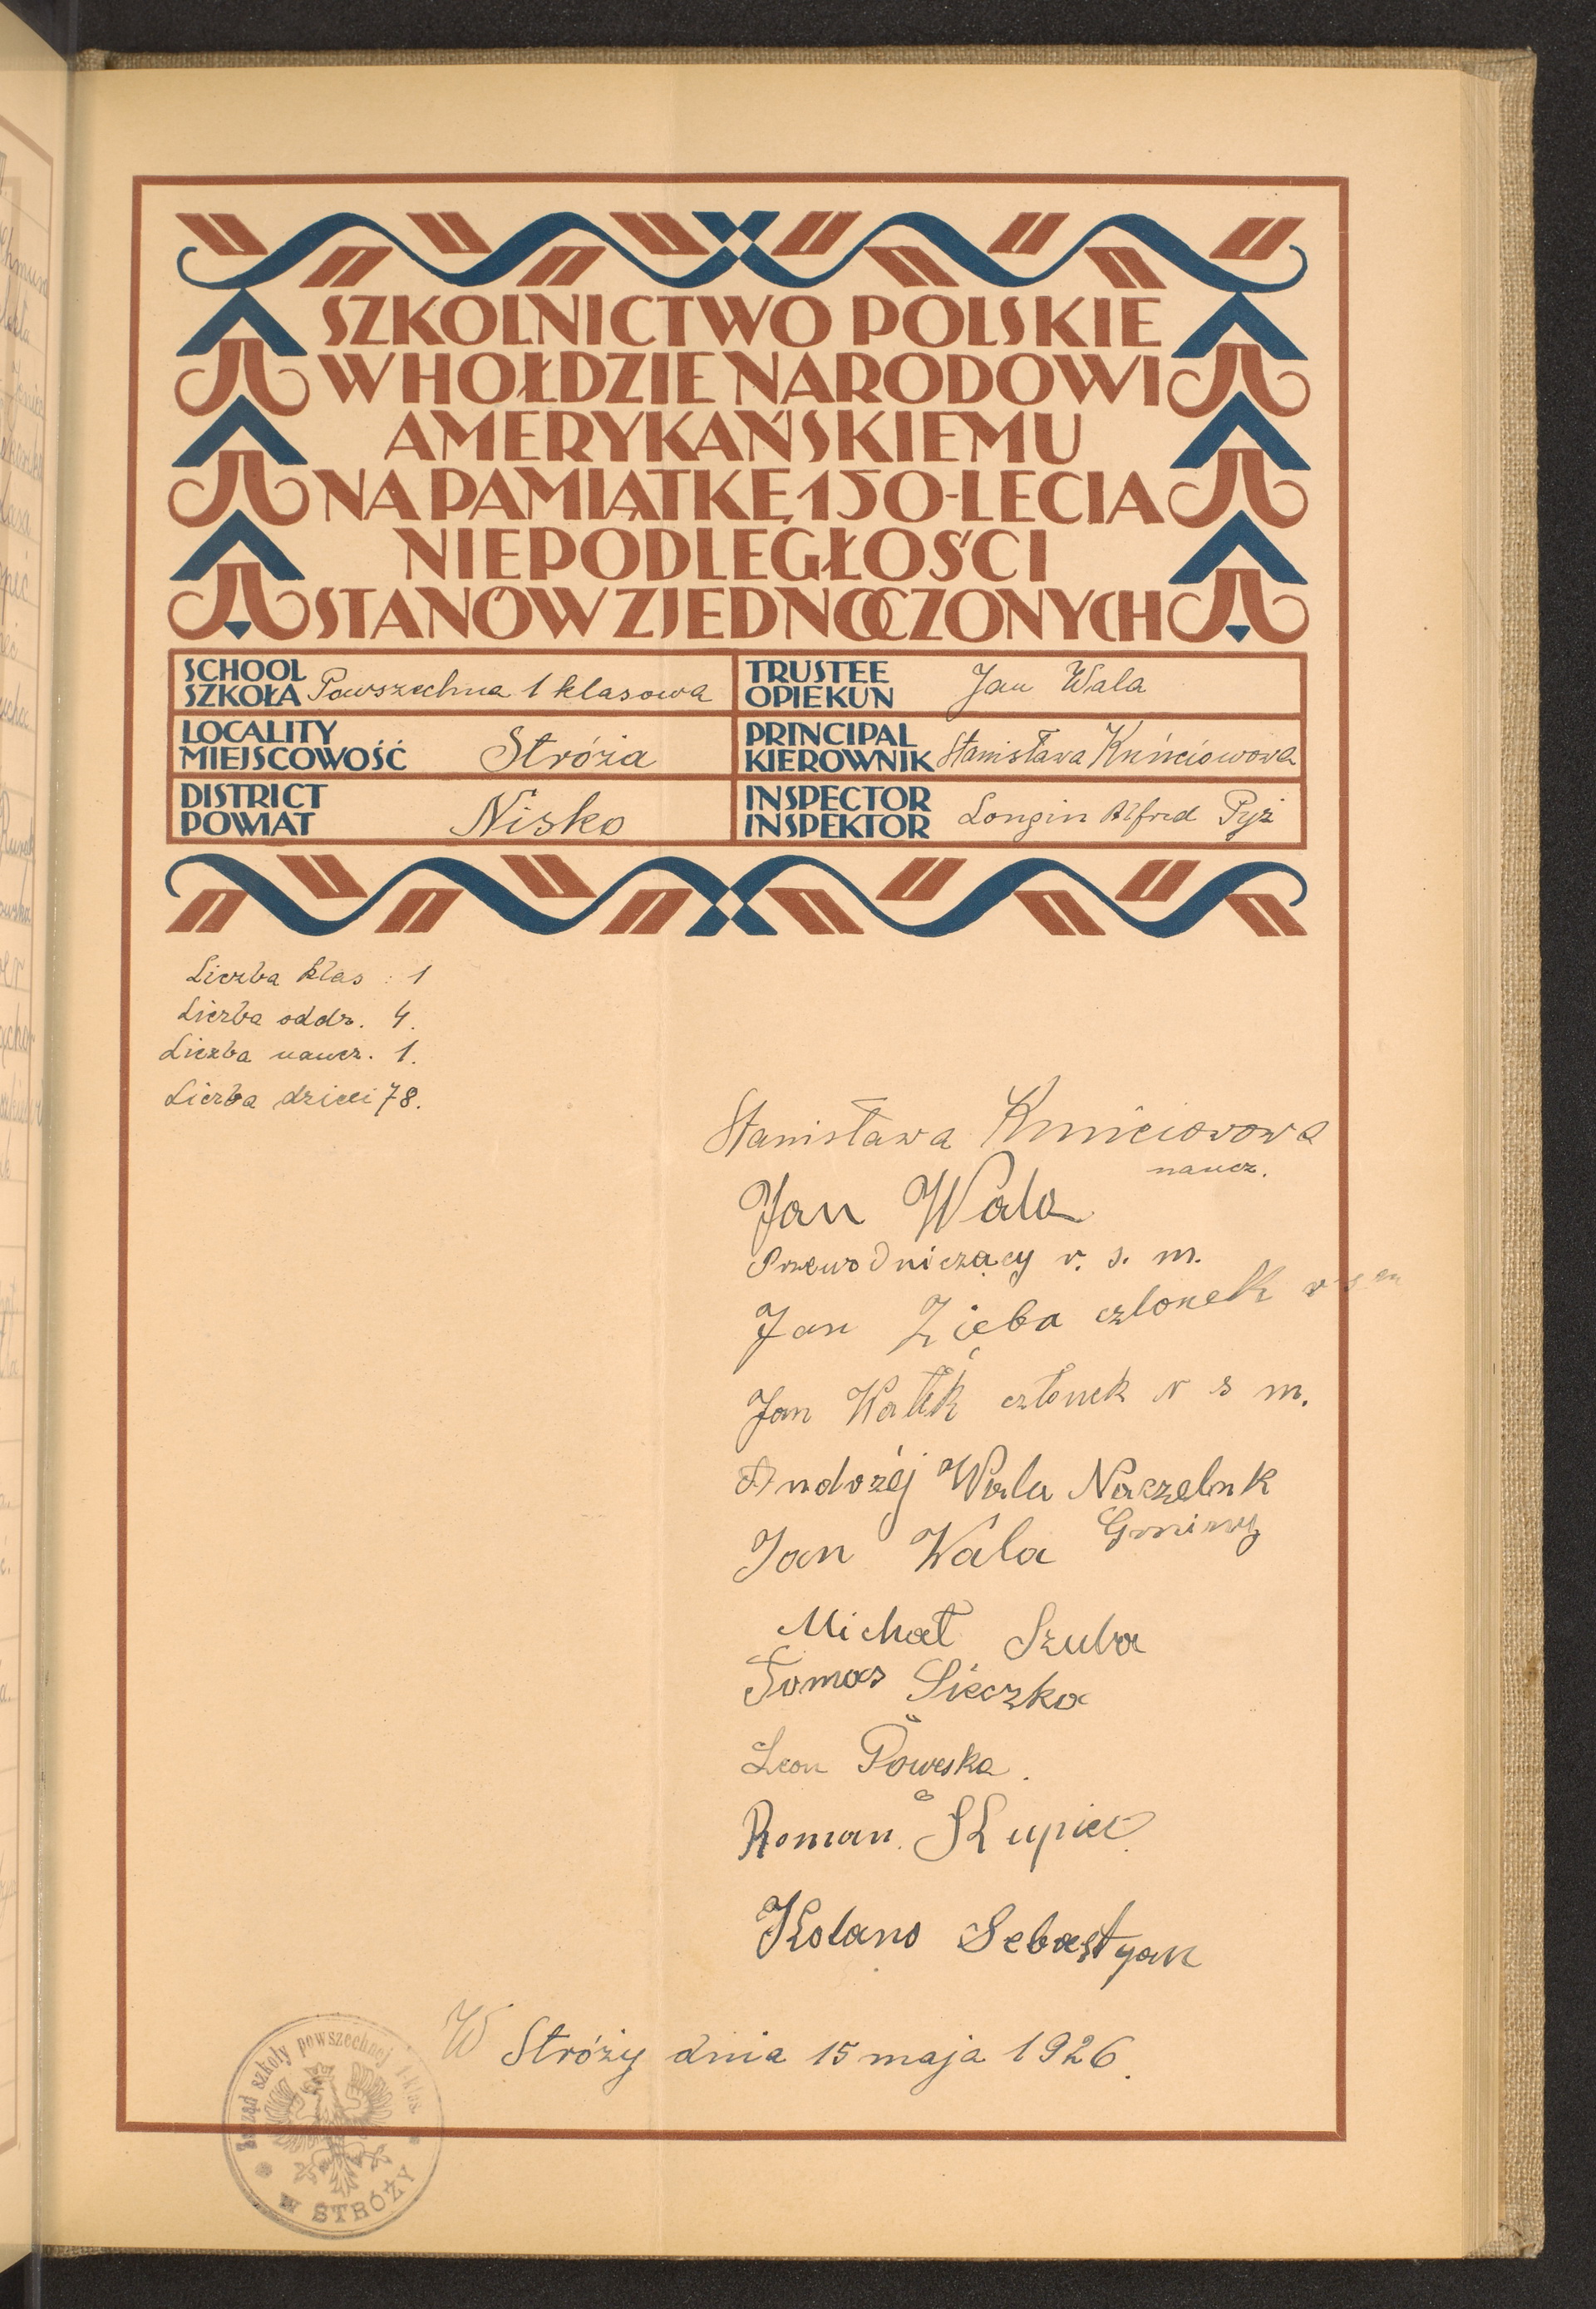 SZKOLNICTWO POLSKIE
W HOŁDZIE NARODOWI
AMERYKAŃSKIEMU
NA PAMIĄTKĘ 150-LECIA
NIEPODLEGŁOŚCI
STANÓW ZJEDNOCZONYCH
SCHOOL
SZKOŁA Powszechna 1 klasowa
TRUSTEE
OPIEKUN Jan Wala
LOCALITY
MIEJSCOWOŚĆ Stróża
PRINCIPAL
KIEROWNIK Stanisława
DISTRICT
POWIAT Nisko
INSPECTOR
INSPEKTOR Longin Alfred Pyż
Liczba klas : 1
Liczba oddz. 4.
Liczba naucz. 1.
Liczba dzieci 78.
Stanisława
naucz.
Jan Wala
Przewodniczący r. s. m.
Jan Zięba członek r s m
Jan Wałek członek r s m.
Andrzéj Wala Naczelnk
Gminny
Jan Wala
Michał Szuba
Tomas Sieczka
Leon Poweska.
Roman SŁupiec
Kolano Sebastyan
W Stróży dnia 15 maja 1926.
Zarząd szkoły powszechnej 1 klas.
W STRÓŻY